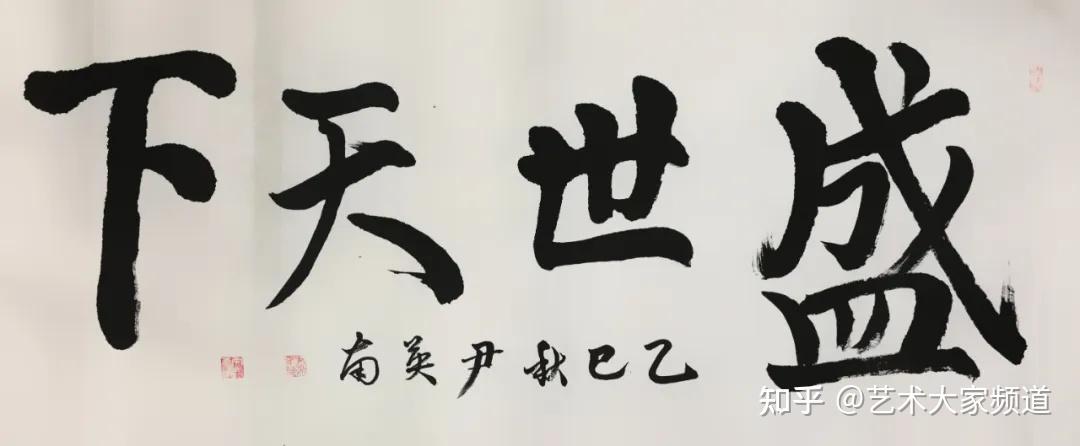 盛世天下
乙巳秋尹英南
知乎 @艺术大家频道